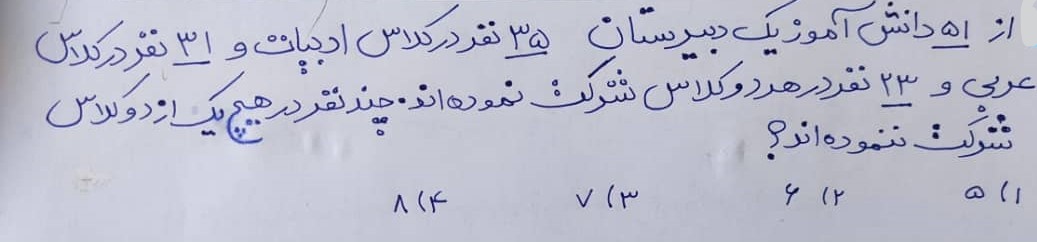 از ۵۱ دانش آموز یک دبیرستان ۳۵ نفر در کلاس ادبیات و ۳۱ نفر در کلاس
عربی و ۲۳ نفر در هر دو کلاس شرکت نموده‌اند. چند نفر در هیچ یک از دو کلاس
شرکت ننموده‌اند؟
۱) ۵ ۲) ۶ ۳) ۷ ۴) ۸